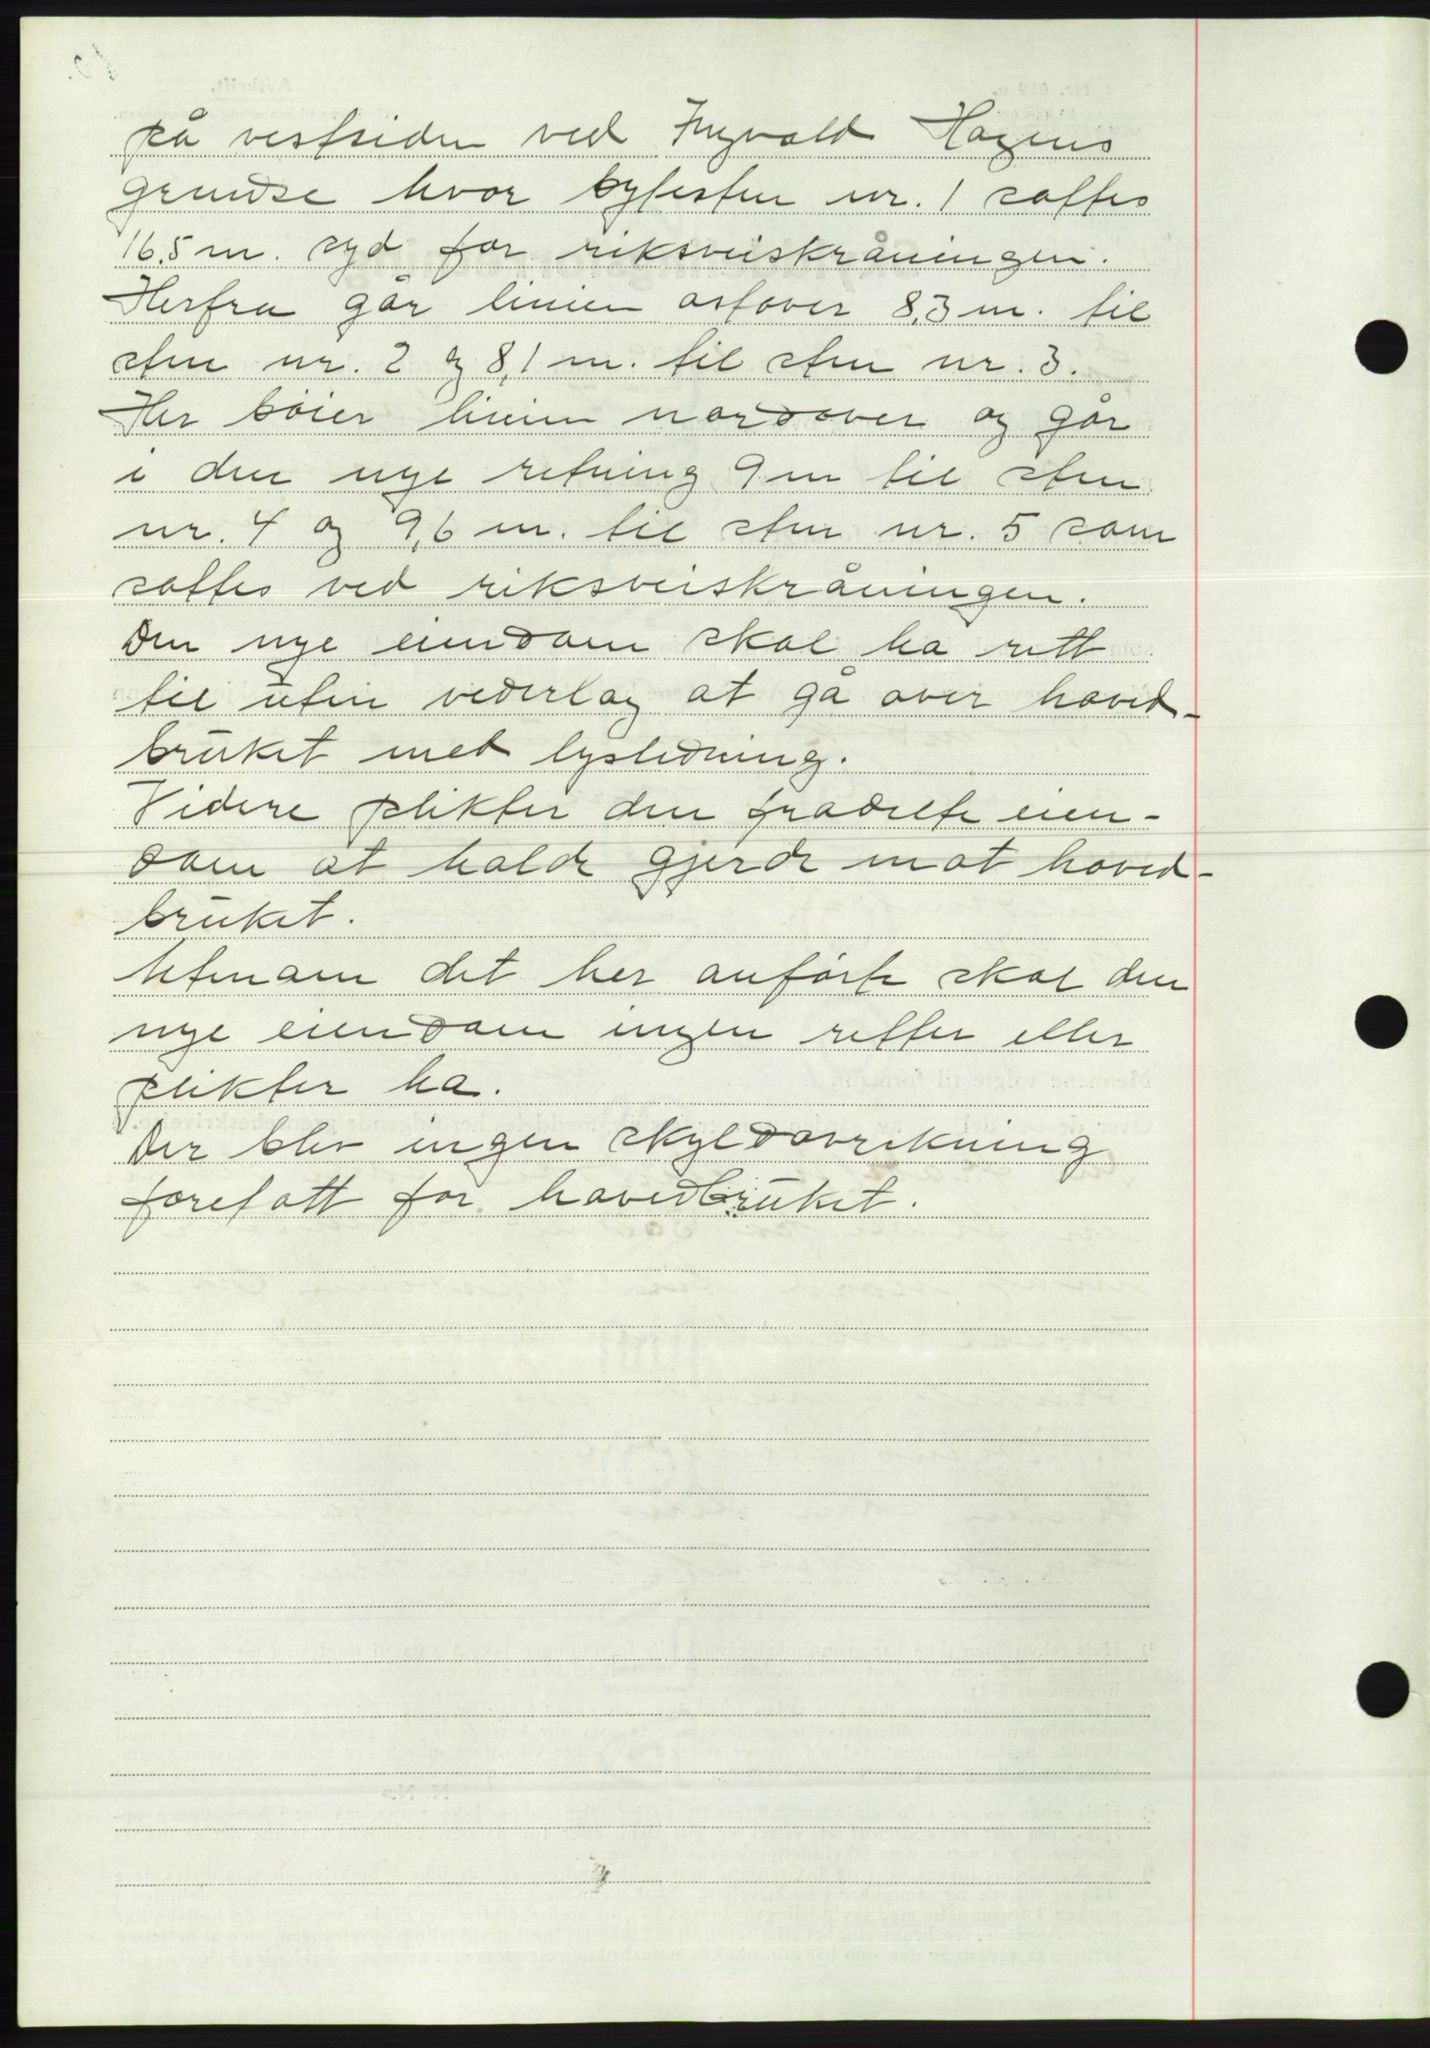 på vestsiden ved Ingvald Hagens
grendse hvor bytesten nr. 1 sattes
16,5 m. syd for riksveiskråningen.
Herfra går linien østover 8,3 m. til
sten nr. 2 og 8,1 m. til sten nr. 3.
Her böier linien nordover og går
i den nye retning 9 m til sten
nr. 4 og 9,6 m. til sten nr. 5 som
sattes ved riksveiskråningen.
Den nye eiendom skal ha rett
til uten vederlag at gå over hoved-
bruket med lysledning.
Videre plikter den fradelte eien-
dom at holde gjerde mot hoved-
bruket.
Utenom det her anförte skal den
nye eiendom ingen retter eller
plikter ha.
Der blev ingen skyldavvikning
foretatt for hovedbruket.